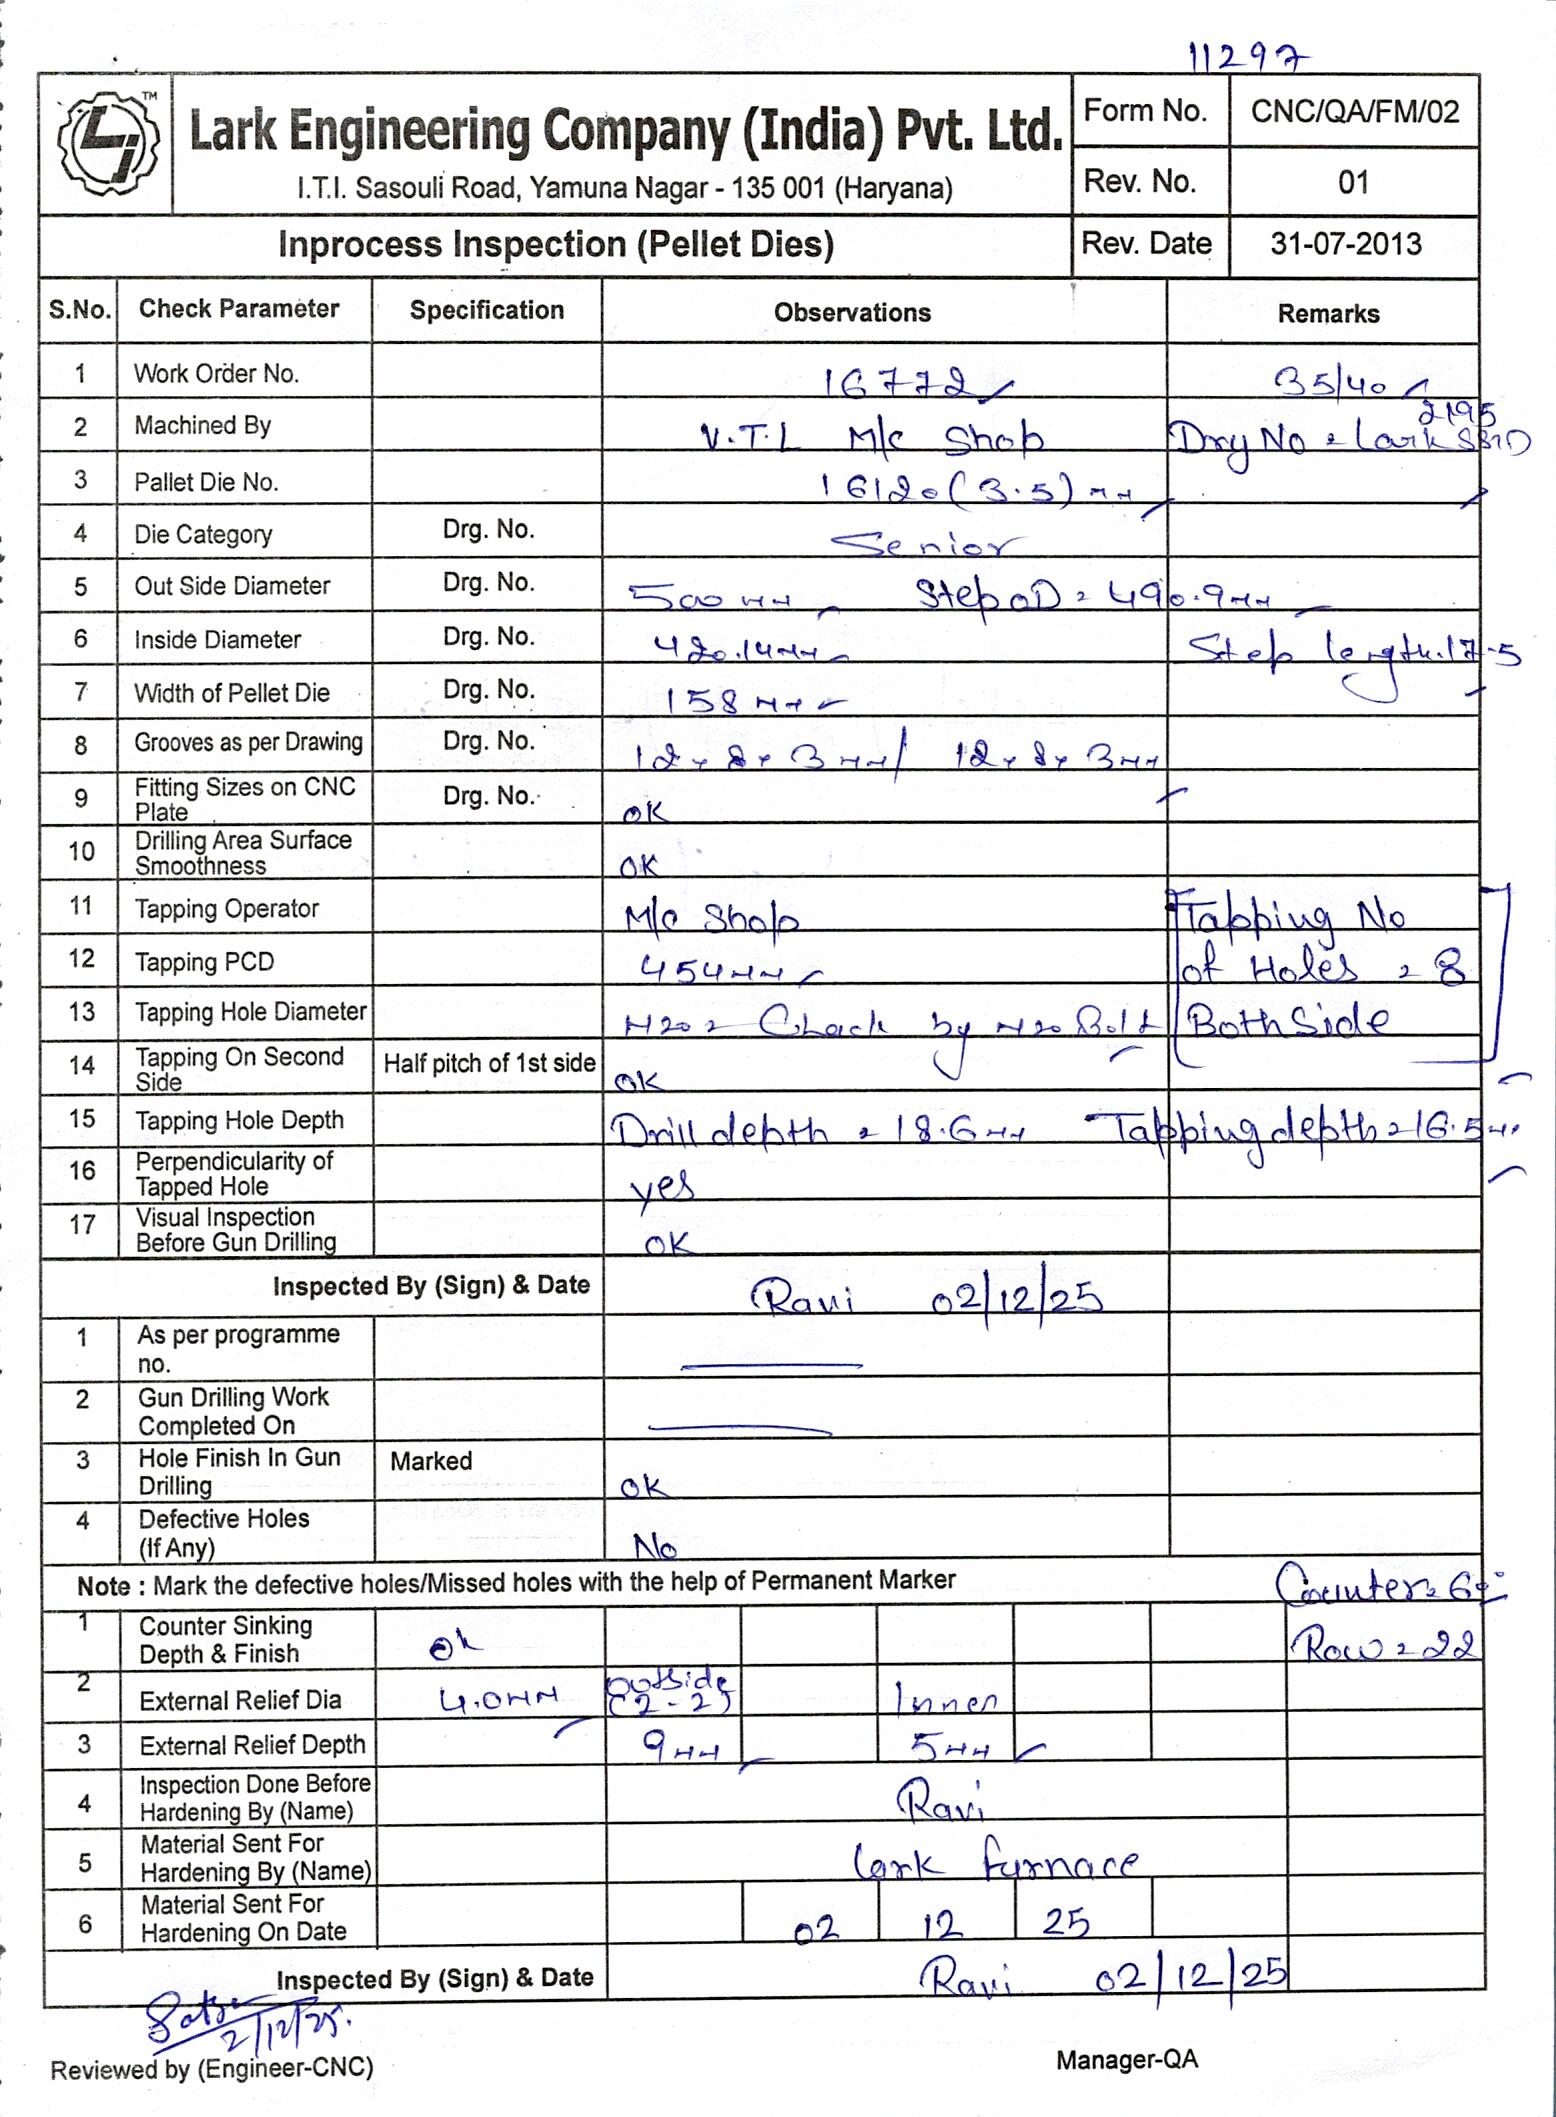 11297
TM
Lark Engineering Company (India) Pvt. Ltd.
I.T.I. Sasouli Road, Yamuna Nagar - 135 001 (Haryana)
Form No. CNC/QA/FM/02
Rev. No. 01
Inprocess Inspection (Pellet Dies) Rev. Date 31-07-2013
S.No. Check Parameter Specification Observations Remarks
1 Work Order No. 16772 35/40
2 Machined By V.T.L M/c Shop Drg No = Lark 2195
3 Pallet Die No. 16120 (3.5) mm
4 Die Category Drg. No. Senior
5 Out Side Diameter Drg. No. 500 mm Step OD = 490.9mm
6 Inside Diameter Drg. No. 420.14mm Step length. 17.5
7 Width of Pellet Die Drg. No. 158 mm
8 Grooves as per Drawing Drg. No. 12 x 8 x 3 mm / 12 x 8 x 3mm
9 Fitting Sizes on CNC Plate Drg. No. OK
10 Drilling Area Surface Smoothness OK
11 Tapping Operator M/c Shop Tapping No
12 Tapping PCD 454mm of Holes = 8
13 Tapping Hole Diameter M20 = Chack by M20 Bolt Both Side
14 Tapping On Second Side Half pitch of 1st side OK
15 Tapping Hole Depth Drill depth = 18.6mm Tapping depth = 16.5mm
16 Perpendicularity of Tapped Hole yes
17 Visual Inspection Before Gun Drilling OK
Inspected By (Sign) & Date Ravi 02/12/25
1 As per programme no.
2 Gun Drilling Work Completed On
3 Hole Finish In Gun Drilling Marked OK
4 Defective Holes (If Any) No
Note : Mark the defective holes/Missed holes with the help of Permanent Marker Counter = 60°
1 Counter Sinking Depth & Finish Ok Row = 22
2 External Relief Dia 4.0mm Outside (2-2) Inner
3 External Relief Depth 9mm 5mm
4 Inspection Done Before Hardening By (Name) Ravi
5 Material Sent For Hardening By (Name) Lark furnace
6 Material Sent For Hardening On Date 02 12 25
Inspected By (Sign) & Date Ravi 02/12/25
2/12/25.
Reviewed by (Engineer-CNC) Manager-QA